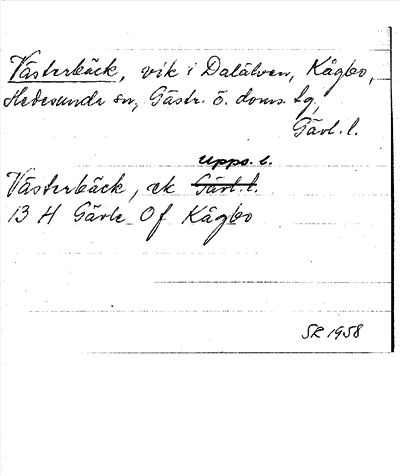 Västerbäck, vik i Dalälven, Kågbo,
Hedesunda sn, Gästr. ö. doms. tg,
Gävl. l.
Upps. l.
Västerbäck, ek Gävl. l.
13 H Gävle Of Kågbo
SR 1958